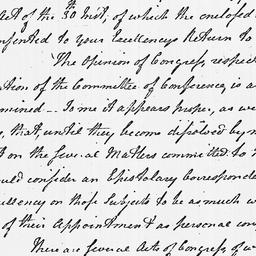 Act of the 30th Inst, of which the enclosed
sented to your Excellencys Return to
The Opinion of Congress respect
tion of the Committee of Conference, is a
mined — To me it appears proper, as we
, that, until they become dissolved by
on the several Matters committed to
uld consider an Epistolary Corresponde
llency on those Subjects to be as much
of their Appointment as personal con
There are several Acts of Congress of